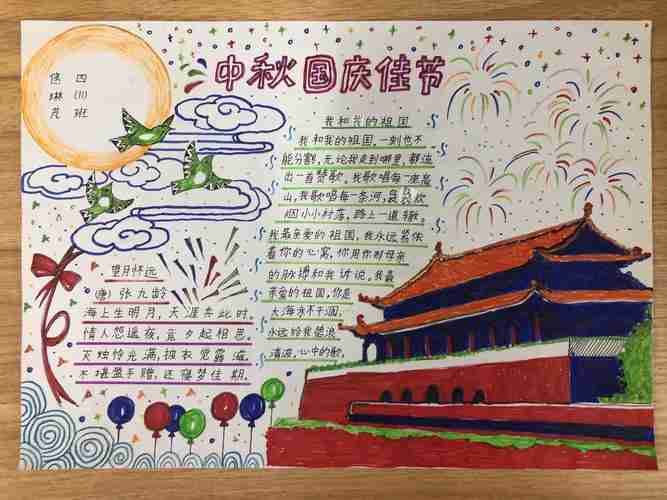 中秋国庆佳节
四(11)班
琳
望月怀远
(唐) 张九龄
海上生明月,天涯共此时,
情人怨遥夜,竟夕起相思,
灭烛怜光满,披衣觉露滋,
不堪盈手赠,还寝梦佳期.
我和我的祖国
我和我的祖国,一刻也不
能分割,无论我走到哪里,都流
出一首赞歌,我歌唱每一座高
山,我歌唱每一条河,袅袅炊
烟小小村落,路上一道辙。
我最亲爱的祖国,我永远紧依
着你的心窝,你用你那母亲
的脉搏和我诉说,我最
亲爱的祖国,你是
大海永不干涸,
永远给我碧浪
清波,心中的歌,